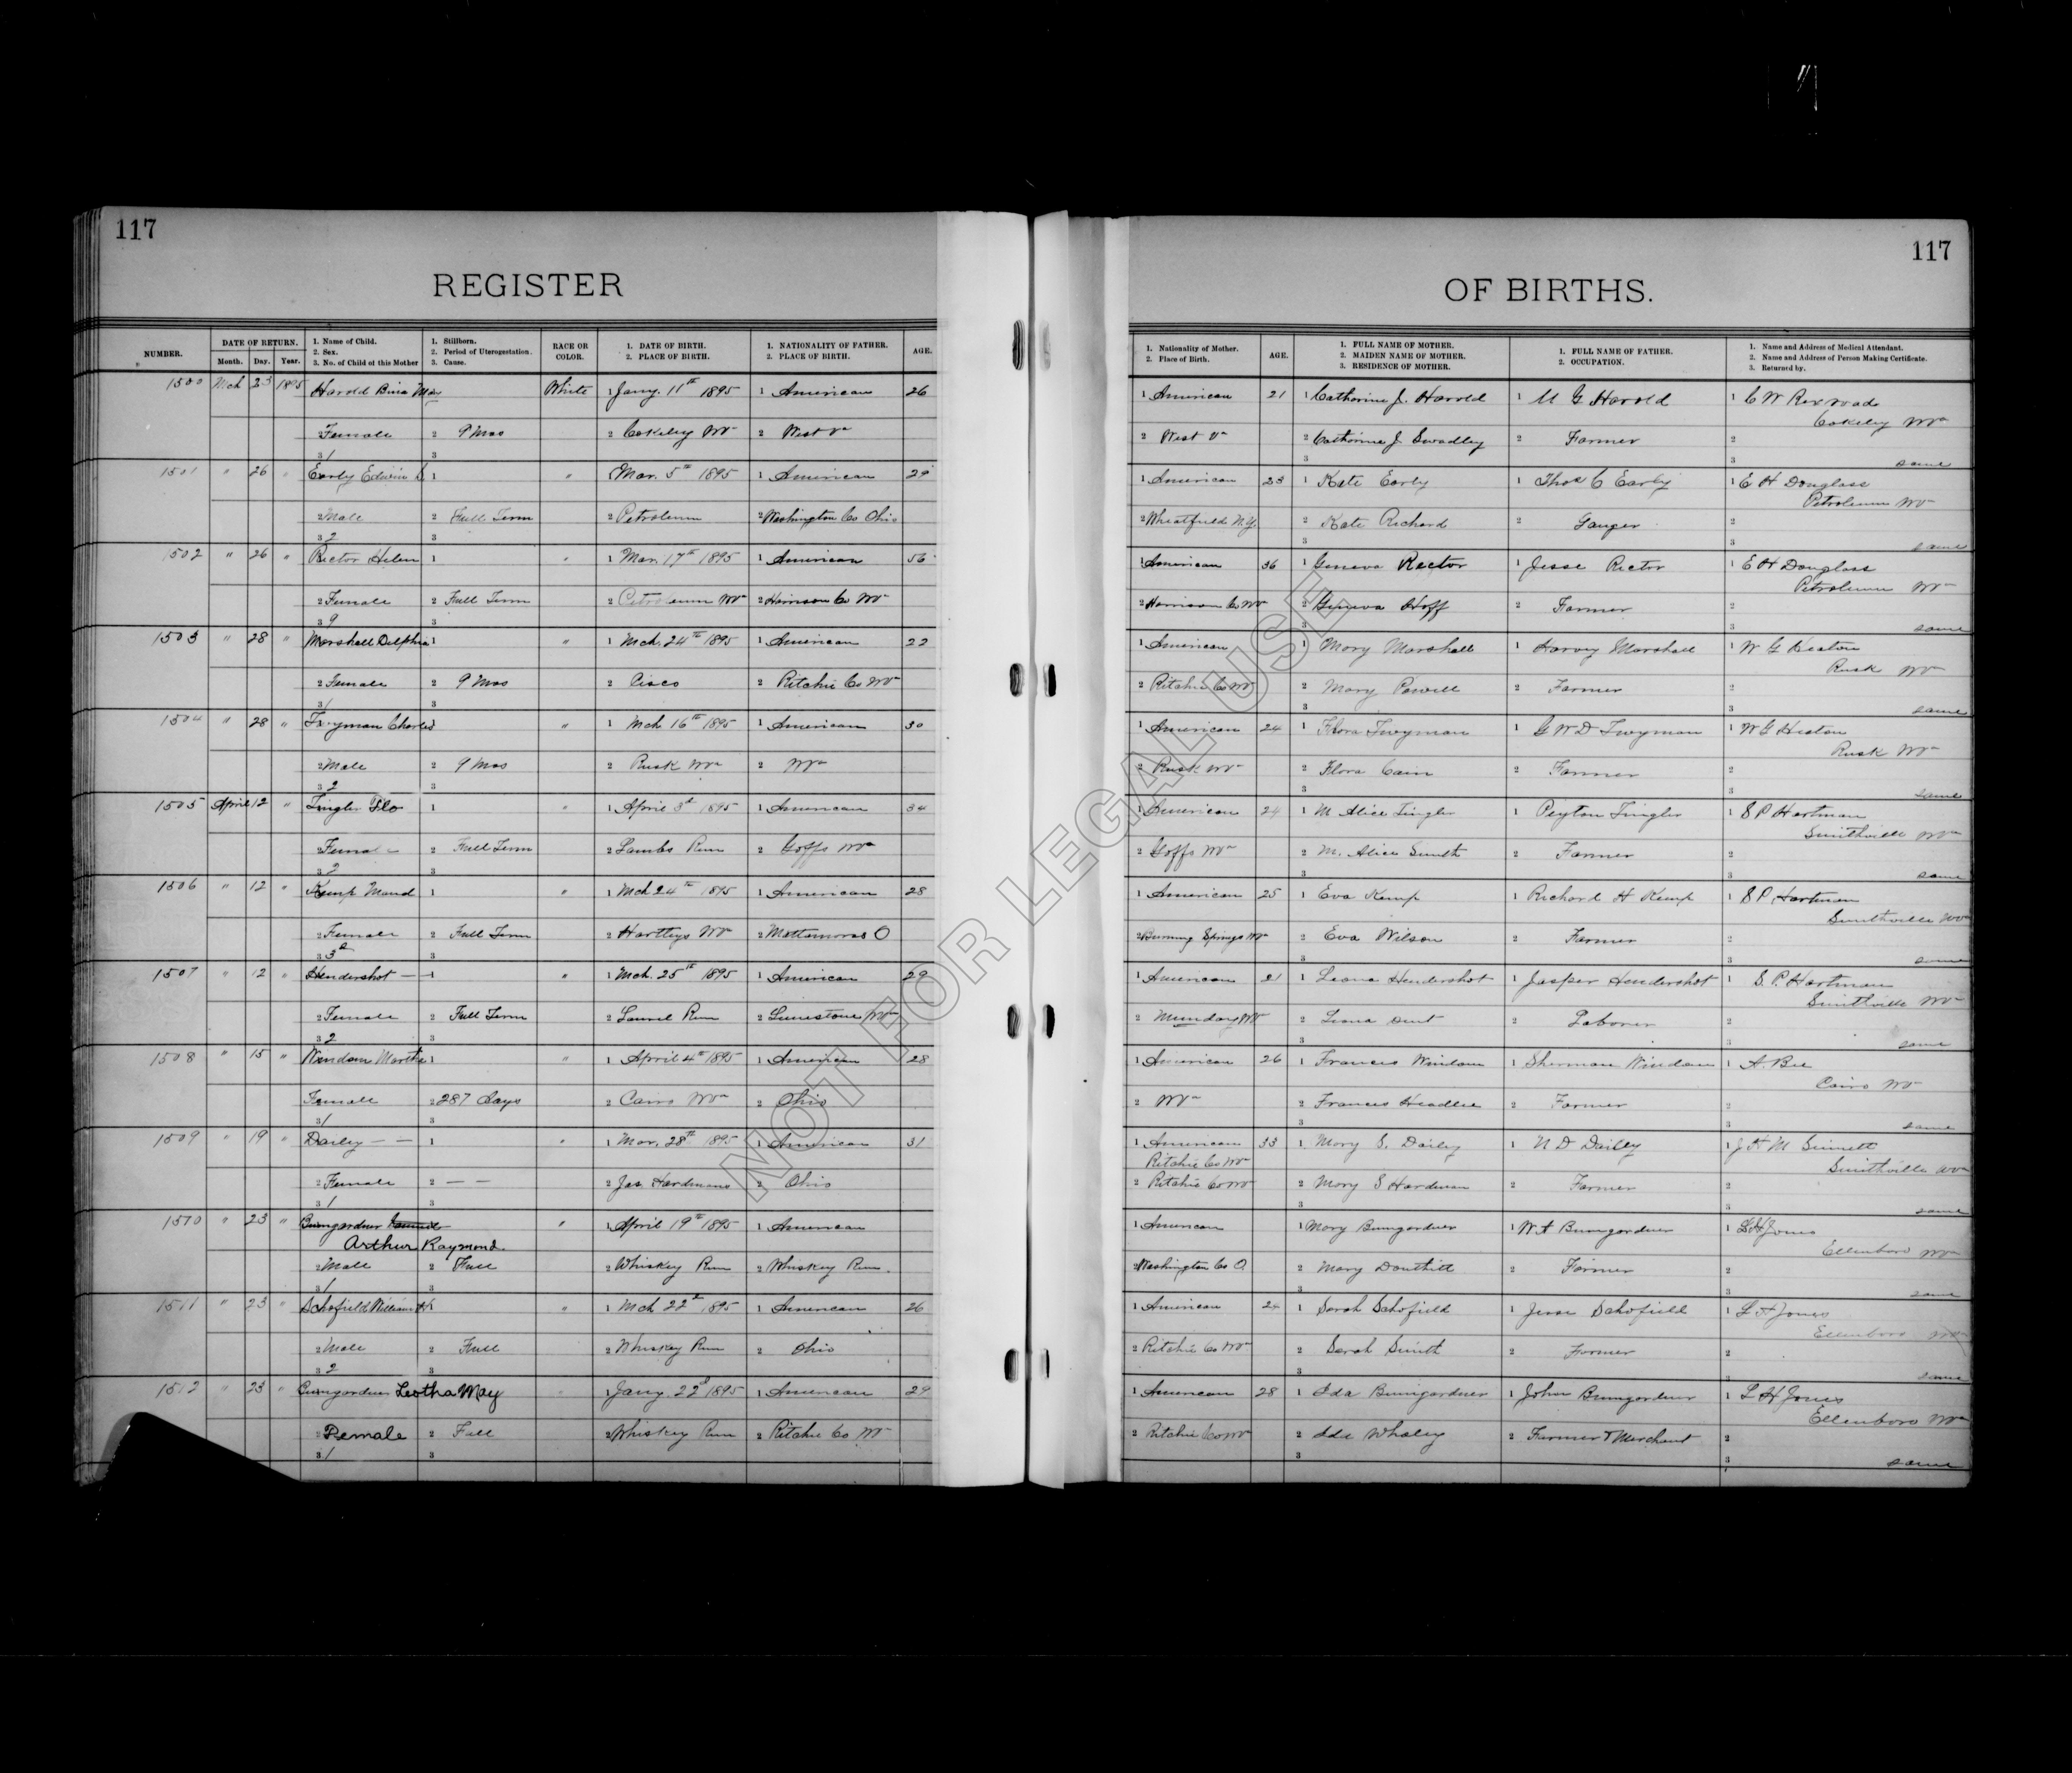 117
117
REGISTER
OF BIRTHS.
NUMBER.
DATE OF RETURN.
Month. Day. Year.
1. Name of Child.
2. Sex.
3. No. of Child of this Mother
1. Stillborn.
2. Period of Uterogestation.
3. Cause.
RACE OR COLOR.
1. DATE OF BIRTH.
2. PLACE OF BIRTH.
1. NATIONALITY OF FATHER.
2. PLACE OF BIRTH.
AGE.
1. Nationality of Mother.
2. Place of Birth.
AGE.
1. FULL NAME OF MOTHER.
2. MAIDEN NAME OF MOTHER.
3. RESIDENCE OF MOTHER.
1. FULL NAME OF FATHER.
2. OCCUPATION.
1. Name and Address of Medical Attendant.
2. Name and Address of Person Making Certificate.
3. Returned by.
1500 Mch 23 1895 Harold White 1 Jany. 11th 1895 1 American 26 1 American 21 1 Catharine J. Harold 1 M G Harold 1 C W Rexroad
Cokeley Wva
2 Female 2 9 Mos 2 Cokeley Wva 2 West Va 2 West Va 2 Catharine J. Swadley 2 Farmer 2
3 1 3 3 3 same
1501 " 26 " Early Edwin S 1 " 1 Mar. 5th 1895 1 American 29 1 American 23 1 Kate Early 1 Thos C Early 1 E H Douglass
Petroleum Wva
2 Male 2 Full Term 2 Petroleum 2 Washington Co Ohio 2 Wheatfield N.Y. 2 Kate Richard 2 Gauger 2
3 2 3 3 3 same
1502 " 26 " Rector Helen 1 " 1 Mar. 17th 1895 1 American 56 1 American 36 1 Geneva Rector 1 Jesse Rector 1 E H Douglass
Petroleum Wva
2 Female 2 Full Term 2 Petroleum Wva 2 Harrison Co Wva 2 Harrison Co Wva 2 Geneva Hoff 2 Farmer 2
3 9 3 3 3 same
1503 " 28 " Marshall Delphia 1 " 1 Mch. 24th 1895 1 American 22 1 American 1 Mary Marshall 1 Harvey Marshall 1 W G Heaton
Rusk Wva
2 Female 2 9 Mos 2 Cisco 2 Ritchie Co Wva 2 Ritchie Co Wva 2 Mary Powell 2 Farmer 2
3 1 3 3 3 same
1504 " 28 " Twyman Charles " 1 Mch 16th 1895 1 American 30 1 American 24 1 Flora Twyman 1 G W D Twyman 1 W G Heaton
Rusk Wva
2 Male 2 9 Mos 2 Rusk Wva 2 Wva 2 Rusk Wva 2 Flora Cain 2 Farmer 2
3 2 3 3 3 same
1505 April 12 " Tingler Flo 1 " 1 April 3d 1895 1 American 34 1 American 24 1 M Alice Tingler 1 Peyton Tingler 1 S P Hartman
Smithville Wva
2 Female 2 Full Term 2 Lambs Run 2 Goffs Wva 2 Goffs Wva 2 M. Alice Smith 2 Farmer 2
3 2 3 3 3 same
1506 " 12 " Kemp Maud 1 " 1 Mch 24th 1895 1 American 28 1 American 25 1 Eva Kemp 1 Richard H Kemp 1 S P Hartman
Smithville Wva
2 Female 2 Full Term 2 Hartleys Wva 2 Mattamoras O 2 Burning Springs Wva 2 Eva Wilson 2 Farmer 2
3 3d 3 3 3 same
1507 " 12 " Hendershot — 1 " 1 Mch. 25th 1895 1 American 29 1 American 21 1 Leona Hendershot 1 Jasper Hendershot 1 S. P. Hartman
Smithville Wva
2 Female 2 Full Term 2 Laurel Run 2 Limestone Wva 2 Munday Wva 2 Leona Sent 2 Laborer 2
3 2 3 3 3 same
1508 " 15 " Windom Martha 1 " 1 April 4th 1895 1 American 28 1 American 26 1 Frances Windom 1 Sherman Windom 1 A. Bee
Cairo Wva
Female 2 287 Days 2 Cairo Wva 2 Ohio 2 Wva 2 Frances Headlee 2 Farmer 2
3 1 3 3 3 same
1509 " 19 " Dailey — — 1 " 1 Mar. 28th 1895 1 American 31 1 American 33 1 Mary S. Dailey 1 N D Dailey 1 J H M Sinnett
Ritchie Co Wva Smithville Wva
2 Female 2 — — 2 Jas Hardmans 2 Ohio 2 Ritchie Co Wva 2 Mary S Hardman 2 Farmer 2
3 1 3 3 3 same
1510 " 23 " Bumgardner " 1 April 19th 1895 1 American 1 American 1 Mary Bumgardner 1 W A Bumgardner 1 L H Jones
Arthur Raymond. Ellenboro Wva
2 Male 2 Full 2 Whiskey Run 2 Whiskey Run. 2 Washington Co O. 2 Mary Douthitt 2 Farmer 2
3 1 3 3 same
1511 " 23 " Schofield William H " 1 Mch 22d 1895 1 American 26 1 American 24 1 Sarah Schofield 1 Jesse Schofield 1 L H Jones
Ellenboro Wva
2 Male 2 Full 2 Whiskey Run 2 Ohio 2 Ritchie Co Wva 2 Sarah Smith 2 Farmer 2
3 2 3 3 3 same
1512 " 23 " Bumgardner Leotha May " 1 Jany. 22d 1895 1 American 29 1 American 28 1 Ida Bumgardner 1 John Bumgardner 1 L H Jones
Ellenboro Wva
2 Female 2 Full 2 Whiskey Run 2 Ritchie Co Wva 2 Ritchie Co Wva 2 Ida Whaley 2 Farmer & Merchant 2
3 1 3 3 3 same
NOT FOR LEGAL USE